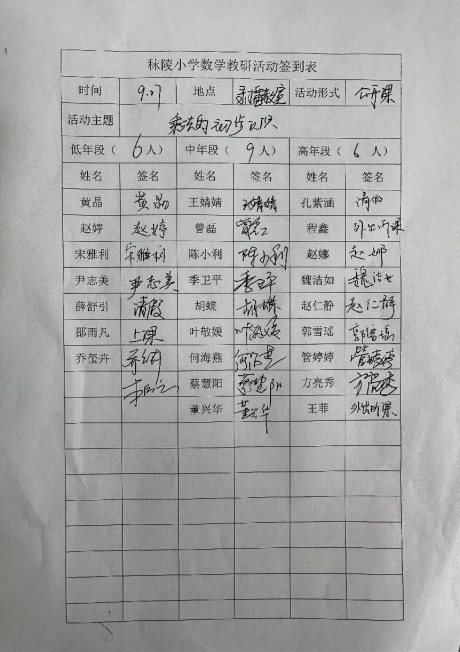 秣陵小学数学教研活动签到表
时间 9.27 地点 录播教室 活动形式 公开课
活动主题 乘法的初步认识
低年段（ 6人） 中年段（ 9人） 高年段（ 6人）
姓名 签名 姓名 签名 姓名 签名
黄晶 黄晶 王婧婧 王婧婧 孔紫涵
赵婷 赵婷 曾磊 曾磊 程鑫 外出听课
宋雅利 宋雅利 陈小利 陈小利 赵娜 赵娜
尹志美 尹志美 季卫平 季卫平 魏洁如 魏洁如
薛舒引 请假 胡蝶 胡蝶 赵仁静 赵仁静
邵雨凡 上课 叶敬媛 叶敬媛 郭雪瑶 郭雪瑶
乔玺卉 乔玺卉 何海燕 何海燕 管婷婷 管婷婷
蔡慧阳 蔡慧阳 方亮秀 方亮秀
董兴华 董兴华 王菲 外出听课